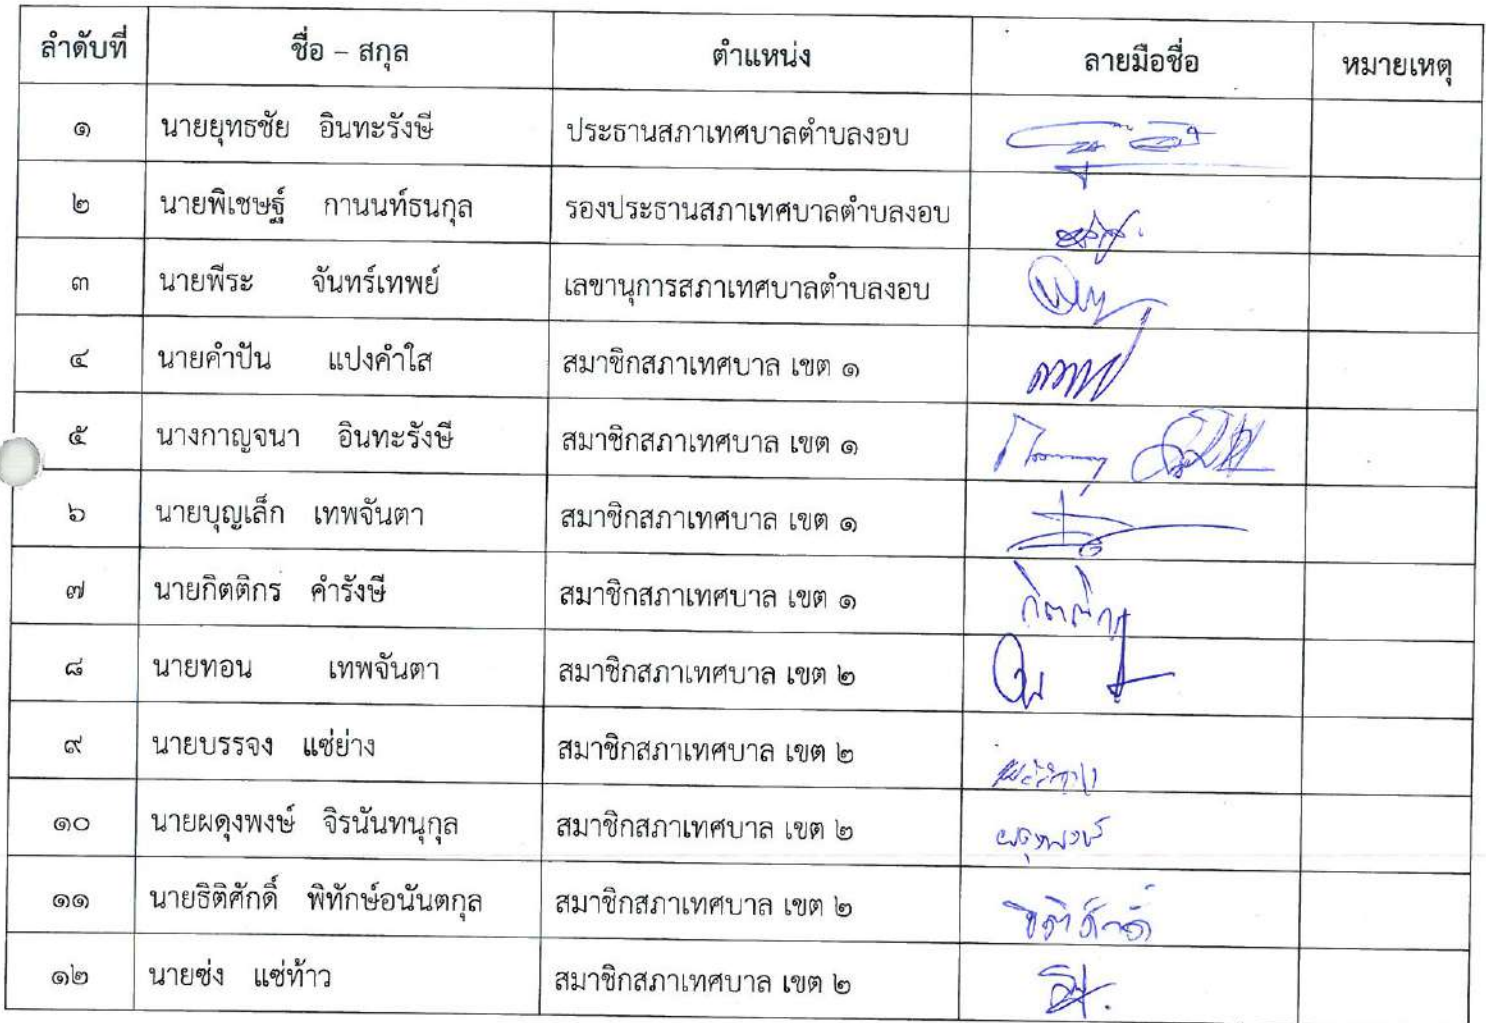 ลำดับที่ ชื่อ – สกุล ตำแหน่ง ลายมือชื่อ หมายเหตุ
๑ นายยุทธชัย อินทะรังษี ประธานสภาเทศบาลตำบลงอบ
๒ นายพิเชษฐ์ กานนท์ธนกุล รองประธานสภาเทศบาลตำบลงอบ
๓ นายพีระ จันทร์เทพย์ เลขานุการสภาเทศบาลตำบลงอบ
๔ นายคำปัน แปงคำใส สมาชิกสภาเทศบาล เขต ๑
๕ นางกาญจนา อินทะรังษี สมาชิกสภาเทศบาล เขต ๑
๖ นายบุญเล็ก เทพจันตา สมาชิกสภาเทศบาล เขต ๑
๗ นายกิตติกร คำรังษี สมาชิกสภาเทศบาล เขต ๑
๘ นายทอน เทพจันตา สมาชิกสภาเทศบาล เขต ๒
๙ นายบรรจง แซ่ย่าง สมาชิกสภาเทศบาล เขต ๒
๑๐ นายผดุงพงษ์ จิรนันทนุกูล สมาชิกสภาเทศบาล เขต ๒ ผดุงพงษ์
๑๑ นายธิติศักดิ์ พิทักษ์อนันตกุล สมาชิกสภาเทศบาล เขต ๒ ธิติศักดิ์
๑๒ นายซ่ง แซ่ท้าว สมาชิกสภาเทศบาล เขต ๒